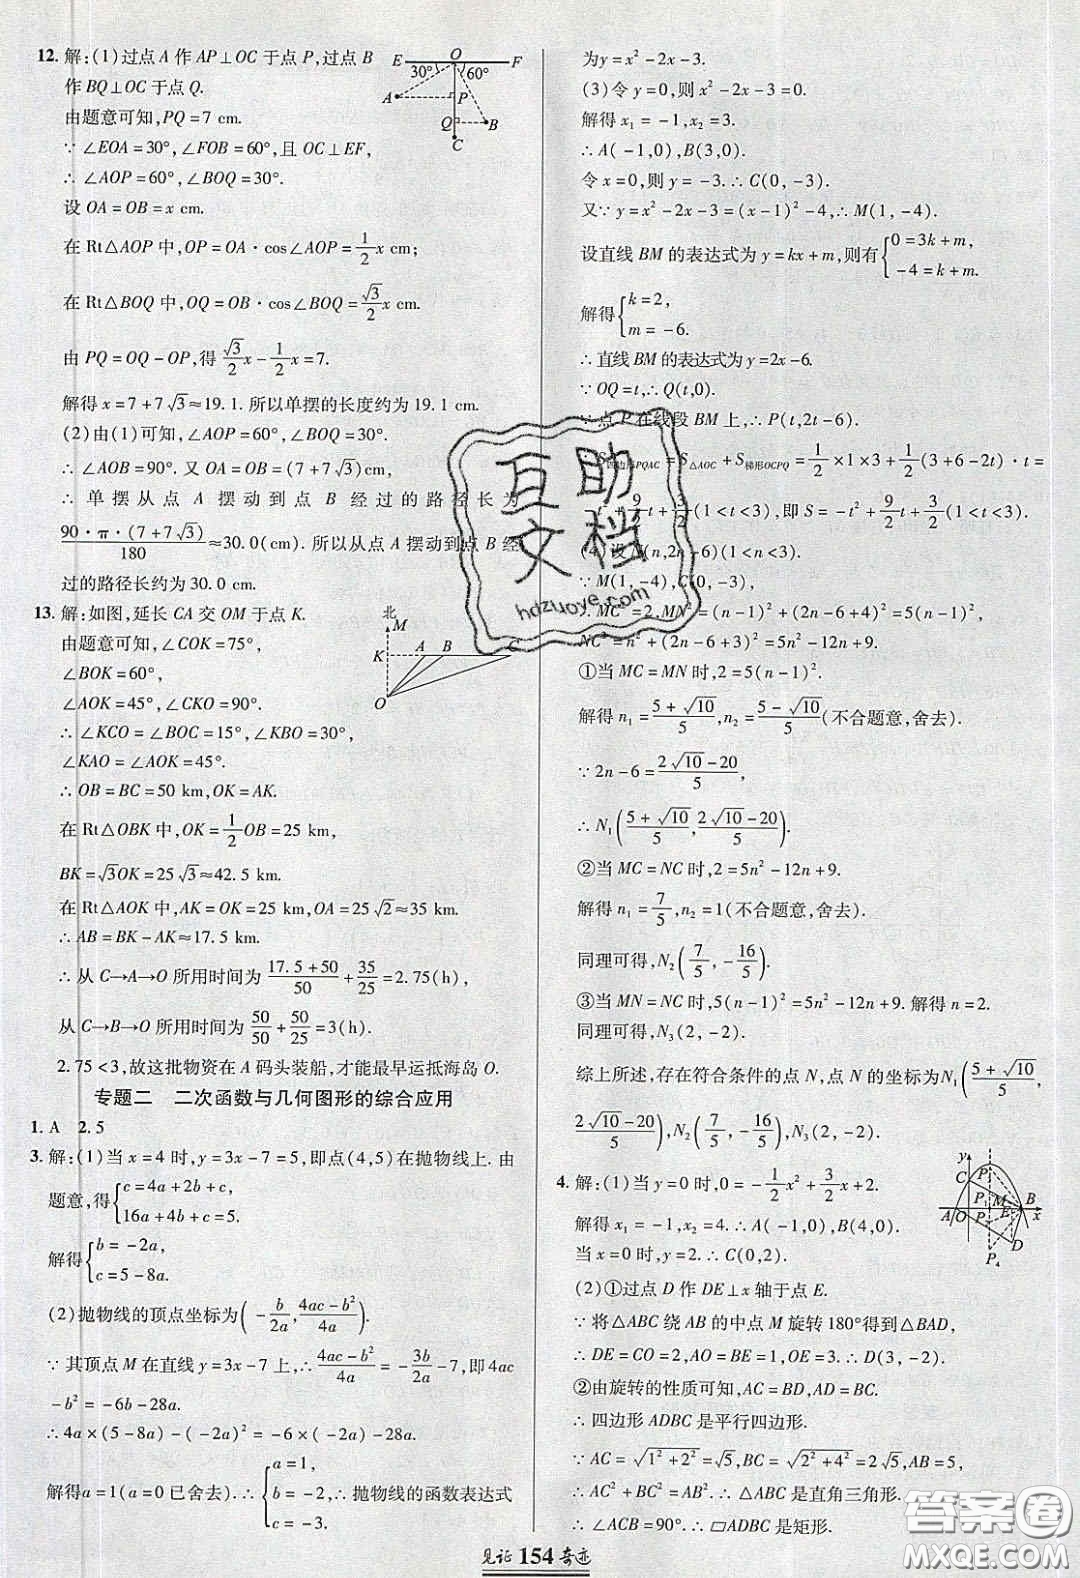 12. 解:(1)过点 A 作 AP⊥OC 于点 P,过点 B
作 BQ⊥OC 于点 Q.
由题意可知,PQ=7 cm.
∵ ∠EOA=30°,∠FOB=60°,且 OC⊥EF,
∴ ∠AOP=60°,∠BOQ=30°.
设 OA=OB=x cm.
在 Rt△AOP 中,OP=OA·cos∠AOP=1/2 x cm;
在 Rt△BOQ 中,OQ=OB·cos∠BOQ=√3/2 x cm.
由 PQ=OQ-OP,得 √3/2 x-1/2 x=7.
解得 x=7+7√3≈19.1. 所以单摆的长度约为 19.1 cm.
(2)由(1)可知,∠AOP=60°,∠BOQ=30°.
∴ ∠AOB=90°. 又 OA=OB=(7+7√3)cm.
∴ 单摆从点 A 摆动到点 B 经过的路径长为
90·π·(7+7√3)/180≈30.0(cm). 所以从点 A 摆动到点 B 经
过的路径长约为 30.0 cm.
13. 解:如图,延长 CA 交 OM 于点 K.
由题意可知,∠COK=75°,
∠BOK=60°,
∠AOK=45°,∠CKO=90°.
∴ ∠KCO=∠BOC=15°,∠KBO=30°,
∠KAO=∠AOK=45°.
∴ OB=BC=50 km,OK=AK.
在 Rt△OBK 中,OK=1/2 OB=25 km,
BK=√3OK=25√3≈42.5 km.
在 Rt△AOK 中,AK=OK=25 km,OA=25√2≈35 km.
∴ AB=BK-AK≈17.5 km.
∴ 从 C→A→O 所用时间为 (17.5+50)/50+35/25=2.75(h),
从 C→B→O 所用时间为 50/50+50/25=3(h).
2.75<3,故这批物资在 A 码头装船,才能最早运抵海岛 O.
专题二 二次函数与几何图形的综合应用
1. A 2. 5
3. 解:(1)当 x=4 时,y=3x-7=5,即点(4,5)在抛物线上. 由
题意,得 {c=4a+2b+c,
16a+4b+c=5.
解得 {b=-2a,
c=5-8a.
(2)抛物线的顶点坐标为(-b/2a,(4ac-b²)/4a).
∵ 其顶点 M 在直线 y=3x-7 上,∴ (4ac-b²)/4a=-3b/2a-7,即 4ac
-b²=-6b-28a.
∴ 4a×(5-8a)-(-2a)²=-6×(-2a)-28a.
解得a=1(a=0 已舍去). ∴ {a=1,
b=-2,∴ 抛物线的函数表达式
c=-3.
为y=x²-2x-3.
(3)令 y=0,则 x²-2x-3=0.
解得 x₁=-1,x₂=3.
∴ A(-1,0),B(3,0).
令 x=0,则 y=-3. ∴ C(0,-3).
又∵ y=x²-2x-3=(x-1)²-4,∴ M(1,-4).
设直线 BM 的表达式为 y=kx+m,则有 {0=3k+m,
-4=k+m.
解得 {k=2,
m=-6.
∴ 直线 BM 的表达式为 y=2x-6.
∵ OQ=t,∴ Q(t,0).
∵ 点 P 在线段 BM 上,∴ P(t,2t-6).
PQAC=S△AOC+S梯形OCPQ=1/2×1×3+1/2(3+6-2t)·t=
t+3/2(1<t<3),即 S=-t²+9/2 t+3/2(1<t<3).
(n,2n-6)(1<n<3).
∵ M(1,-4),C(0,-3),
MC²=2,MN²=(n-1)²+(2n-6+4)²=5(n-1)²,
NC²=n²+(2n-6+3)²=5n²-12n+9.
①当 MC=MN 时,2=5(n-1)².
解得 n₁=(5+√10)/5,n₂=(5-√10)/5(不合题意,舍去).
∵ 2n-6=(2√10-20)/5,
∴ N₁((5+√10)/5,(2√10-20)/5).
②当 MC=NC 时,2=5n²-12n+9.
解得 n₁=7/5,n₂=1(不合题意,舍去).
同理可得,N₂(7/5,-16/5).
③当 MN=NC 时,5(n-1)²=5n²-12n+9. 解得 n=2.
同理可得,N₃(2,-2).
综上所述,存在符合条件的点 N,N₁((5+√10)/5,
(2√10-20)/5),N₂(7/5,-16/5),N₃(2,-2).
4. 解:(1)当 y=0 时,0=-1/2 x²+3/2 x+2.
解得 x₁=-1,x₂=4. ∴ A(-1,0),B(4,0).
当 x=0 时,y=2. ∴ C(0,2).
(2)①过点 D 作 DE⊥x 轴于点 E.
∵ 将△ABC 绕 AB 的中点 M 旋转 180°得到△BAD,
∴ DE=CO=2,AO=BE=1,OE=3. ∴ D(3,-2).
②由旋转的性质可知,AC=BD,AD=BC.
∴ 四边形 ADBC 是平行四边形.
∵ AC=√(1²+2²)=√5,BC=√(2²+4²)=2√5,AB=5.
∴ AC²+BC²=AB². ∴ △ABC 是直角三角形.
∴ ∠ACB=90°. ∴ ▱ADBC 是矩形.
见证 154 奇迹
互助
文档
hdzuoye.com
答案圈
MXQE.COM